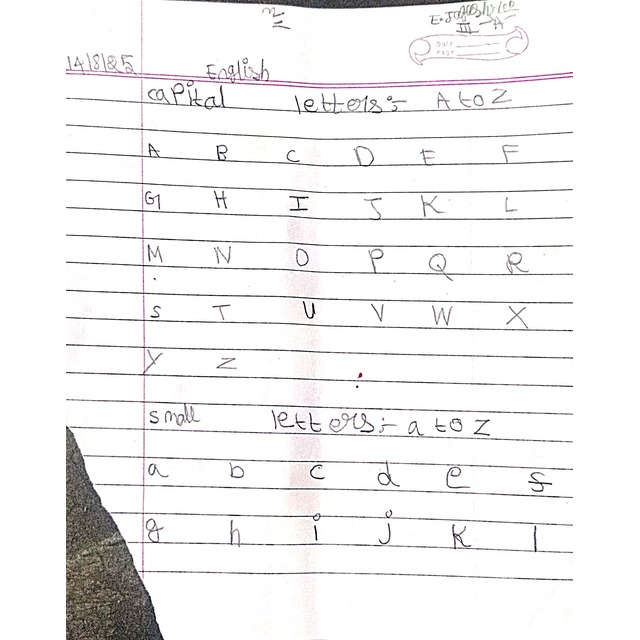 III - A
14/8/25
English
capital letters:- A to Z
A B C D E F
G H I J K L
M N O P Q R
S T U V W X
Y Z
small letters:- a to z
a b c d e f
g h i j k l